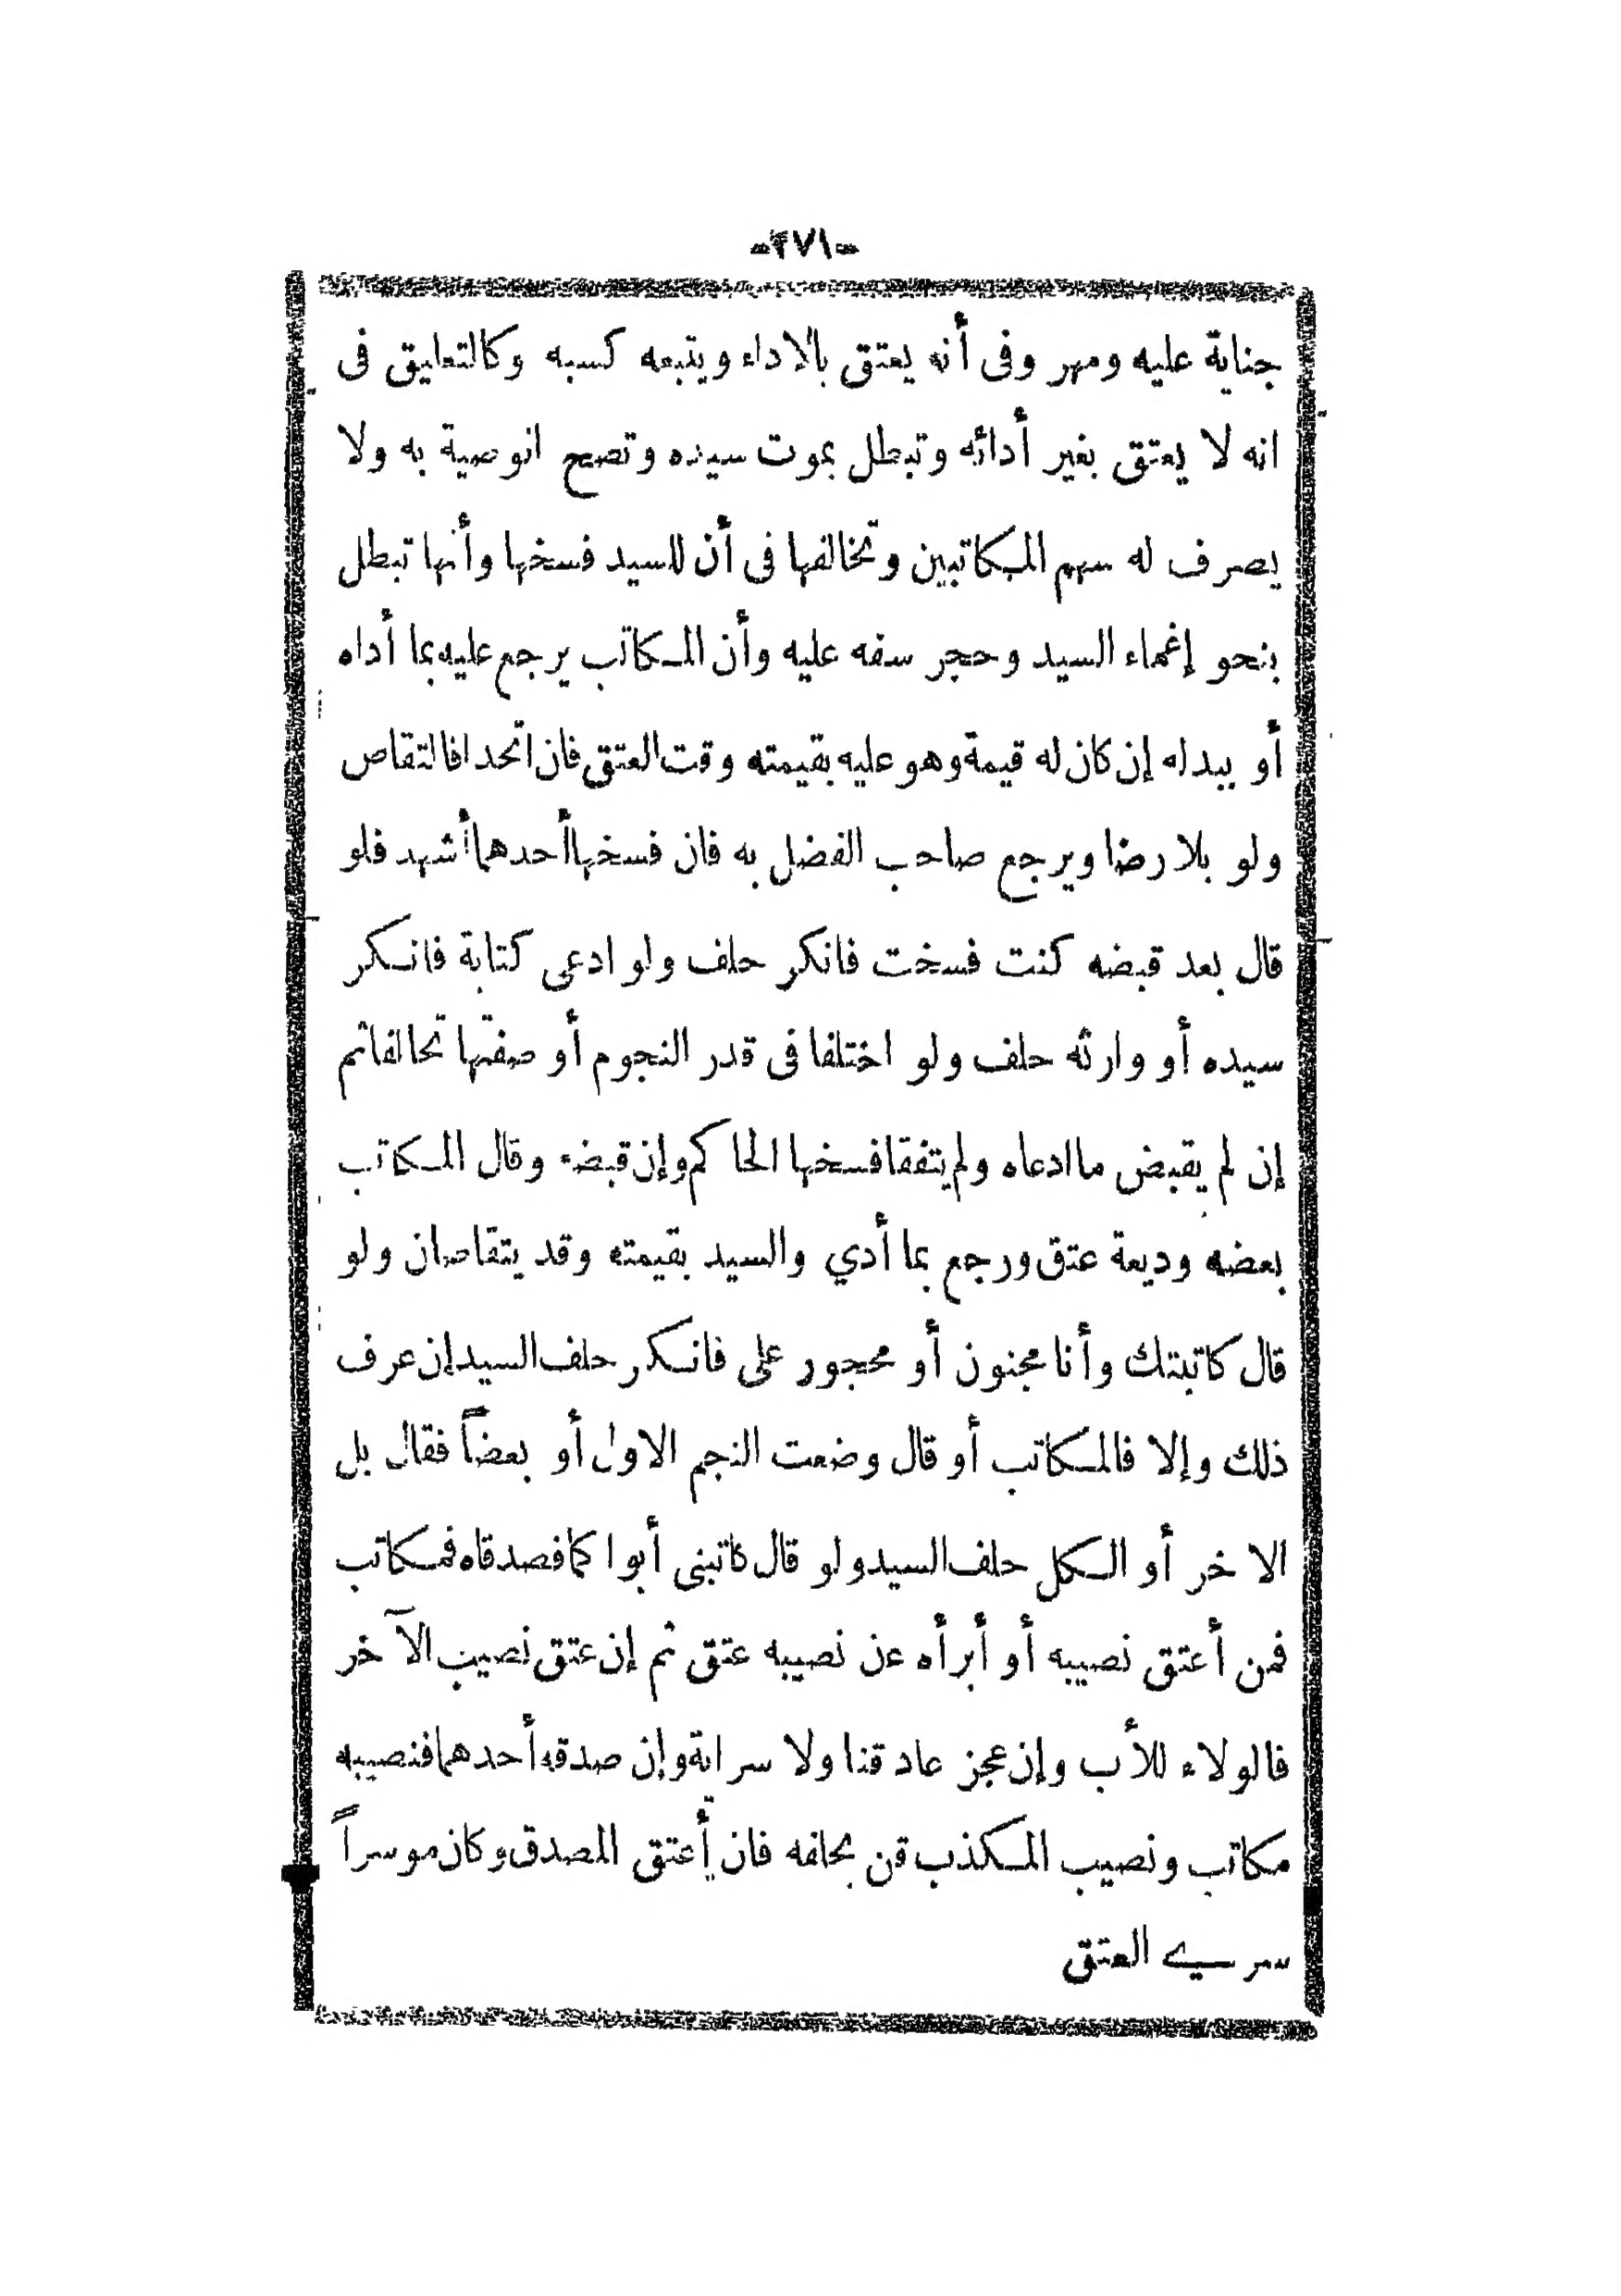 -٢٧١-
جناية عليه ومهر وفى أنه يعتق بالاداء ويتبعه كسبه وكالتعليق فى
انه لا يعتق بغير أدائه وتبطل بموت سيده وتصح الوصية به ولا
يصرف له سهم المكاتبين وتخالفها فى أن للسيد فسخها وأنها تبطل
بنحو إغماء السيد وحجر سفه عليه وأن المكاتب يرجع عليه بما أداه
أو ببدله إن كان له قيمة وهو عليه بقيمته وقت العتق فان اتحدا فالتقاص
ولو بلا رضا ويرجع صاحب الفضل به فان فسخها أحدهما أشهد فلو
قال بعد قبضه كنت فسخت فانكر حلف ولو ادعى كتابة فانكر
سيده أو وارثه حلف ولو اختلفا فى قدر النجوم أو صفتها تحالفا ثم
إن لم يقبض ما ادعاه ولم يتفقا فسخها الحاكم وإن قبضه وقال المكاتب
بعضه وديعة عتق ورجع بما أدي والسيد بقيمته وقد يتقاصان ولو
قال كاتبتك وأنا مجنون أو محجور على فانكر حلف السيد إن عرف
ذلك وإلا فالمكاتب أو قال وضعت النجم الاول أو بعضاً فقال بل
الاخر أو الكل حلف السيد ولو قال كاتبنى أبوا كما فصدقاه فمكاتب
فمن أعتق نصيبه أو أبرأه عن نصيبه عتق ثم إن عتق نصيب الآخر
فالولاء للأب وإن عجز عاد قنا ولا سراية وإن صدقه أحدهما فنصيبه
مكاتب ونصيب المكذب قن بحلفه فان أعتق المصدق وكان موسراً
سرى العتق